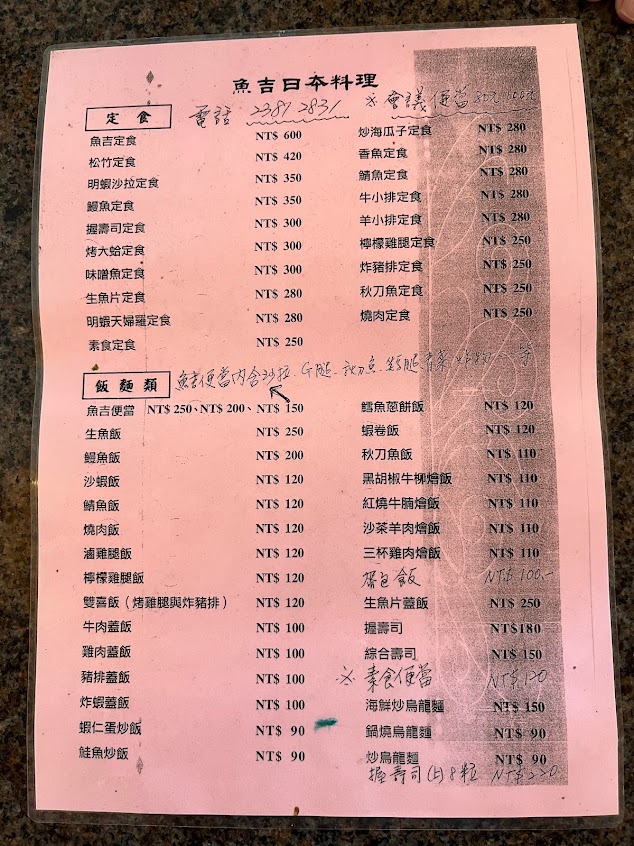 魚吉日本料理
電話 2381 2831
※會議便當
定食
魚吉定食 NT$ 600
松竹定食 NT$ 420
明蝦沙拉定食 NT$ 350
鰻魚定食 NT$ 350
握壽司定食 NT$ 300
烤大蛤定食 NT$ 300
味噌魚定食 NT$ 300
生魚片定食 NT$ 280
明蝦天婦羅定食 NT$ 280
素食定食 NT$ 250
炒海瓜子定食 NT$ 280
香魚定食 NT$ 280
鯖魚定食 NT$ 280
牛小排定食 NT$ 280
羊小排定食 NT$ 280
檸檬雞腿定食 NT$ 250
炸豬排定食 NT$ 250
秋刀魚定食 NT$ 250
燒肉定食 NT$ 250
飯麵類
魚吉便當內含沙拉、G腿、秋刀魚、
魚吉便當 NT$ 250、NT$ 200、NT$ 150
生魚飯 NT$ 250
鰻魚飯 NT$ 200
沙蝦飯 NT$ 120
鯖魚飯 NT$ 120
燒肉飯 NT$ 120
滷雞腿飯 NT$ 120
檸檬雞腿飯 NT$ 120
雙喜飯（烤雞腿與炸豬排） NT$ 120
牛肉蓋飯 NT$ 100
雞肉蓋飯 NT$ 100
豬排蓋飯 NT$ 100
炸蝦蓋飯 NT$ 100
蝦仁蛋炒飯 NT$ 90
鮭魚炒飯 NT$ 90
鱈魚蔥餅飯 NT$ 120
蝦卷飯 NT$ 120
秋刀魚飯 NT$ 110
黑胡椒牛柳燴飯 NT$ 110
紅燒牛腩燴飯 NT$ 110
沙茶羊肉燴飯 NT$ 110
三杯雞肉燴飯 NT$ 110
摺包飯 NT$ 100.-
生魚片蓋飯 NT$ 250
握壽司 NT$180
綜合壽司 NT$ 150
※素食便當 NT$ 120
海鮮炒烏龍麵 NT$ 150
鍋燒烏龍麵 NT$ 90
炒烏龍麵 NT$ 90
握壽司(上)8粒 NT$ 220